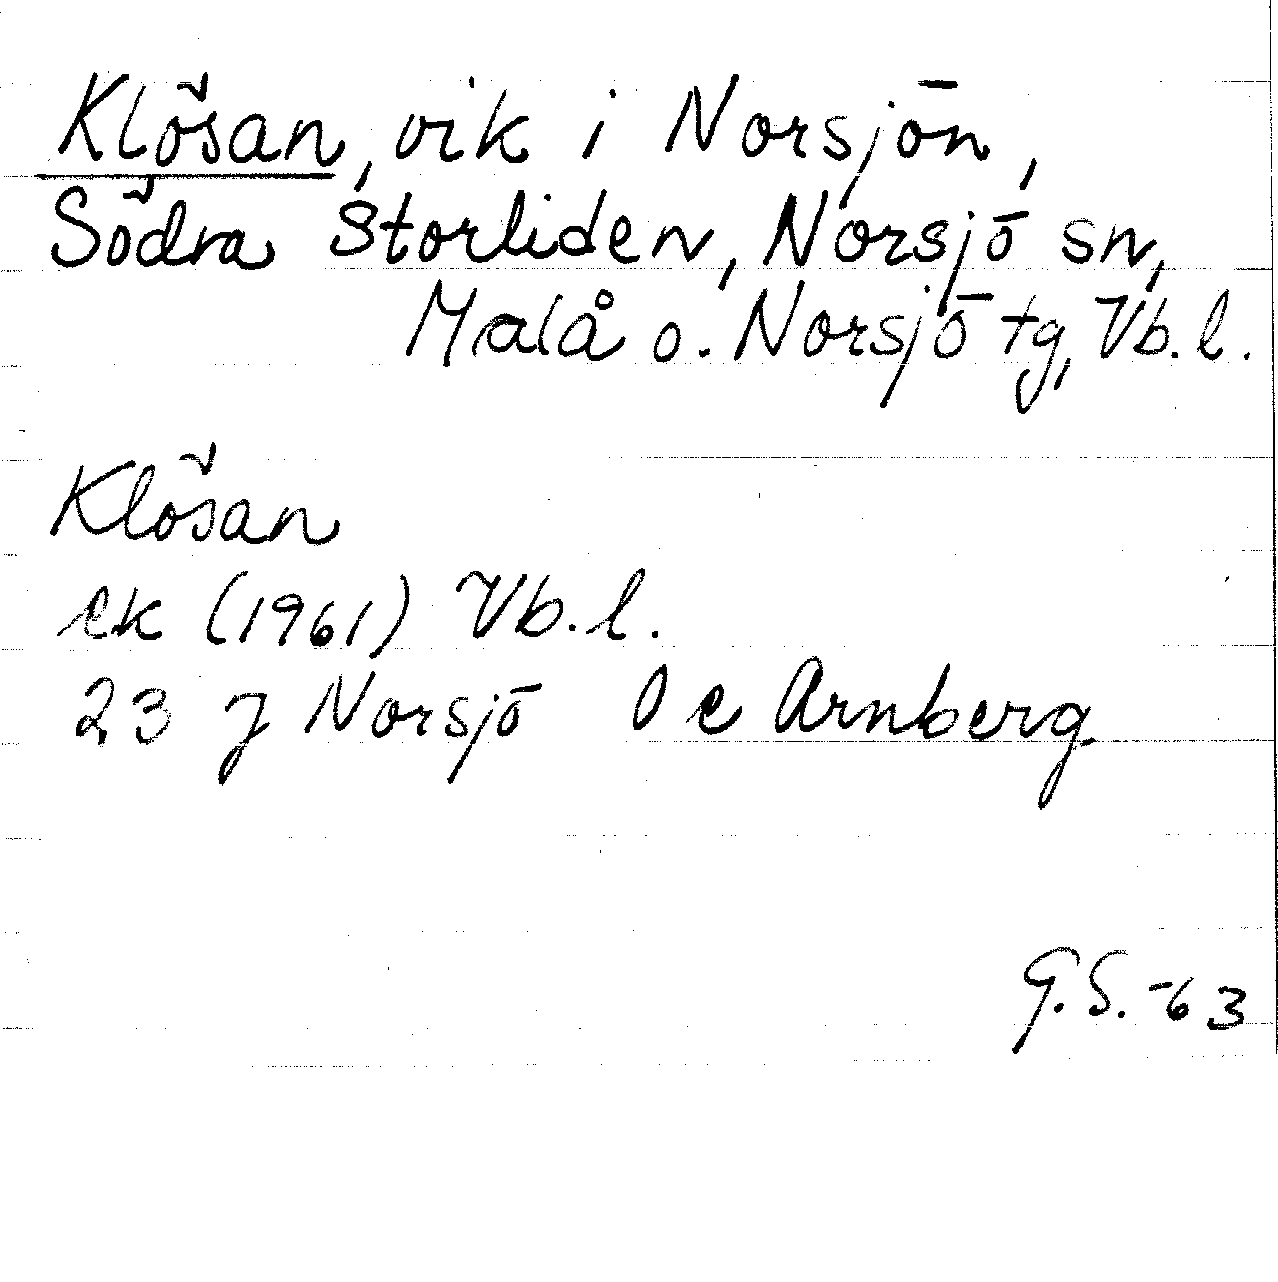 Klösan, vik i Norsjön,
Södra Storliden, Norsjö sn,
Malå o. Norsjö tg, Vb. l.
Klösan
ek (1961) Vb. l.
23 J Norsjö O e Arnberg
G.S. -63